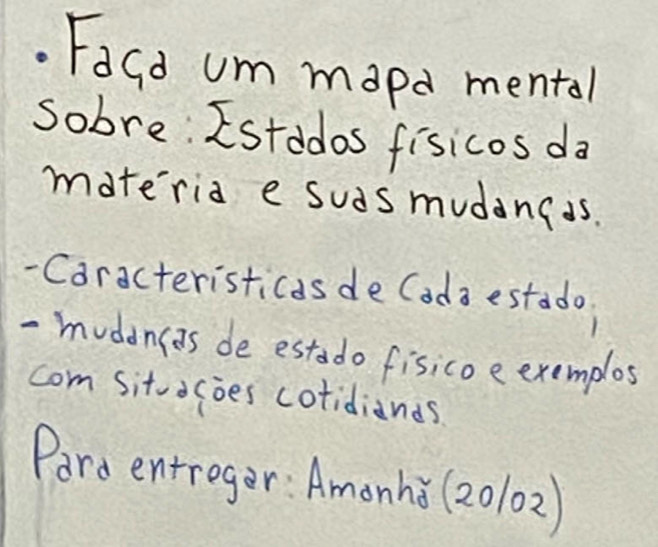 • Faça um mapa mental
sobre: Estados físicos da
matéria e suas mudanças.
- Características de cada estado;
- mudanças de estado físico e exemplos
com situações cotidianas.
Para entregar: Amanhã (20/02)